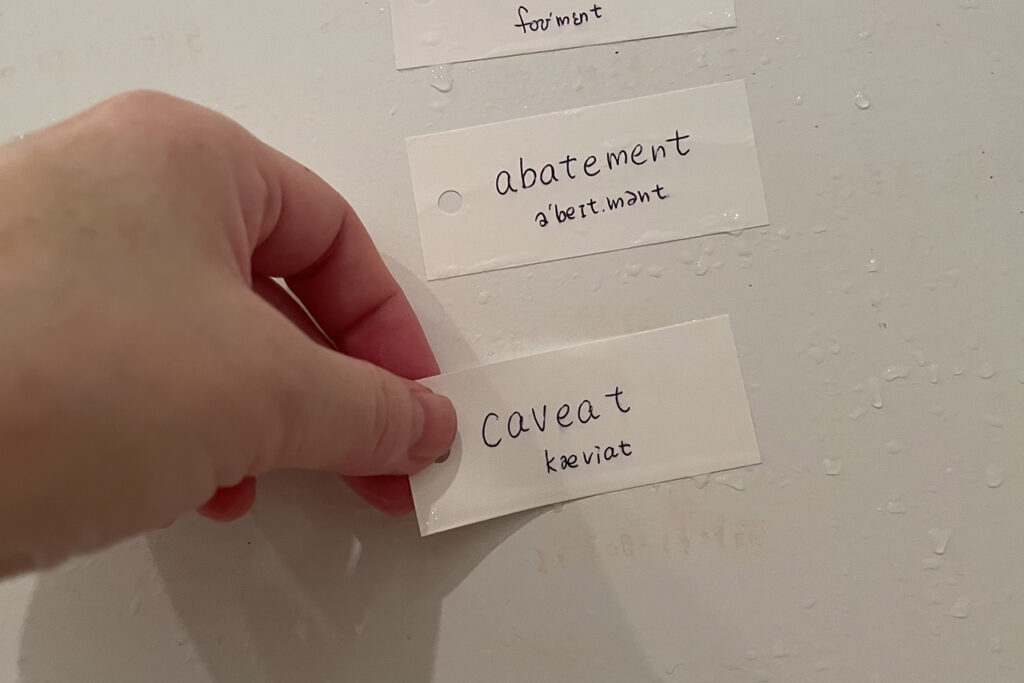 fou'mɛnt
abatement
ə'beɪt.mənt
caveat
kæviat